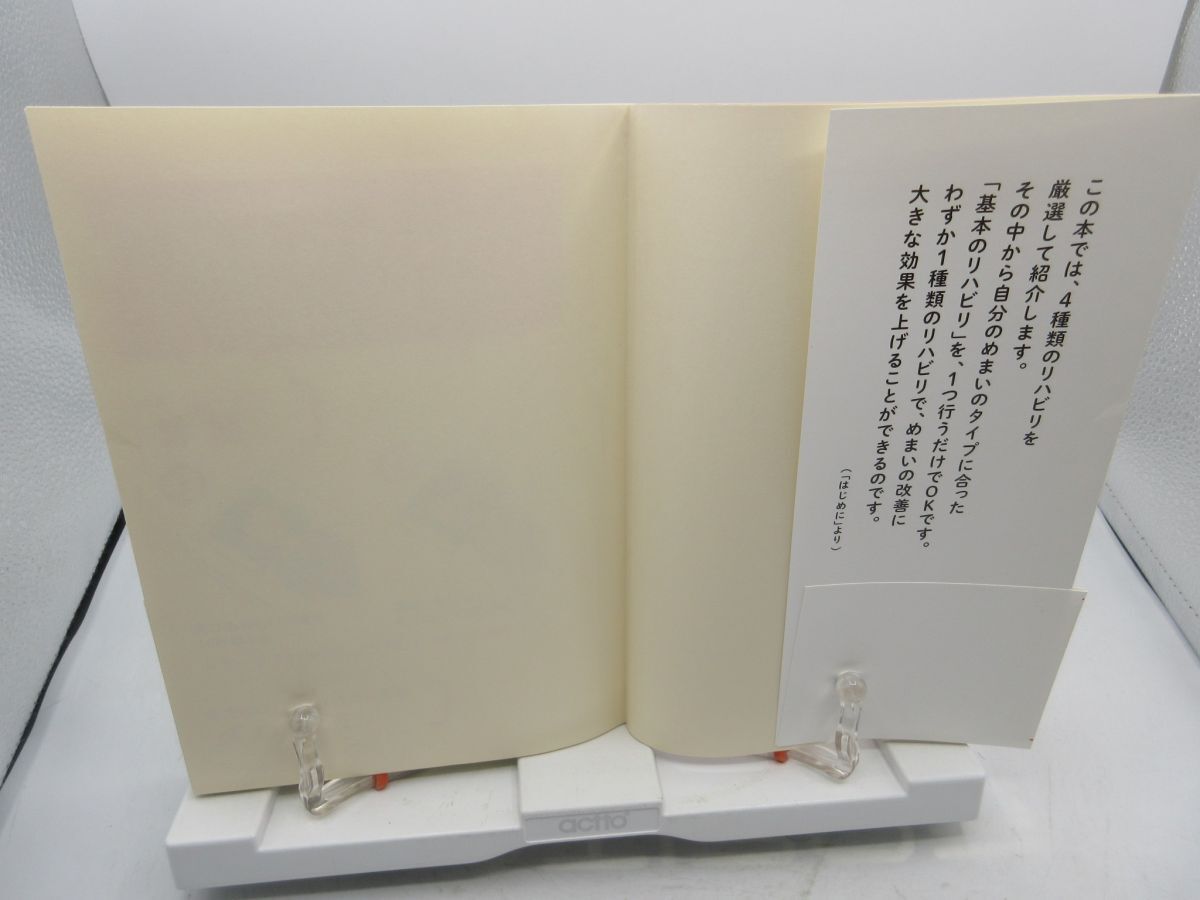 この本では、4種類のリハビリを
厳選して紹介します。
その中から自分のめまいのタイプに合った
「基本のリハビリ」を、1つ行うだけでOKです。
わずか1種類のリハビリで、めまいの改善に
大きな効果を上げることができるのです。
(「はじめに」より)
actto